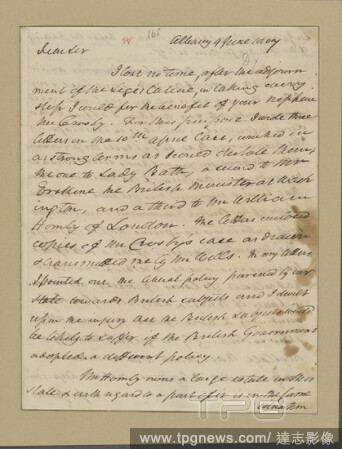 165
Albany 4 June 1807
Dear Sir
I lost no time, after the adjourn
ment of the Legislature, in taking every
step I could for the benefit of your nephew
Mr Crosby. For this purpose I wrote three
letters on the 10th April last, couched in
as strong terms as I could dictate them,
the one to Lady Bath, a second to Mr
Erskine the British Minister at Wash
ington, and a third to Mr William
Hornby of London. The letters enclosed
copies of Mr Crosby's case as drawn
& transmitted me by Mr Wells. In my letters
I pointed out the liberal policy pursued by our
State towards British subjects and I dwelt
upon the injury all the British subjects would
be likely to suffer if the British Government
adopted a different policy
Mr Hornby owns a large estate in this
State & with regard to a part of it is in the same
TPG
www.tpgnews.com / 達志影像